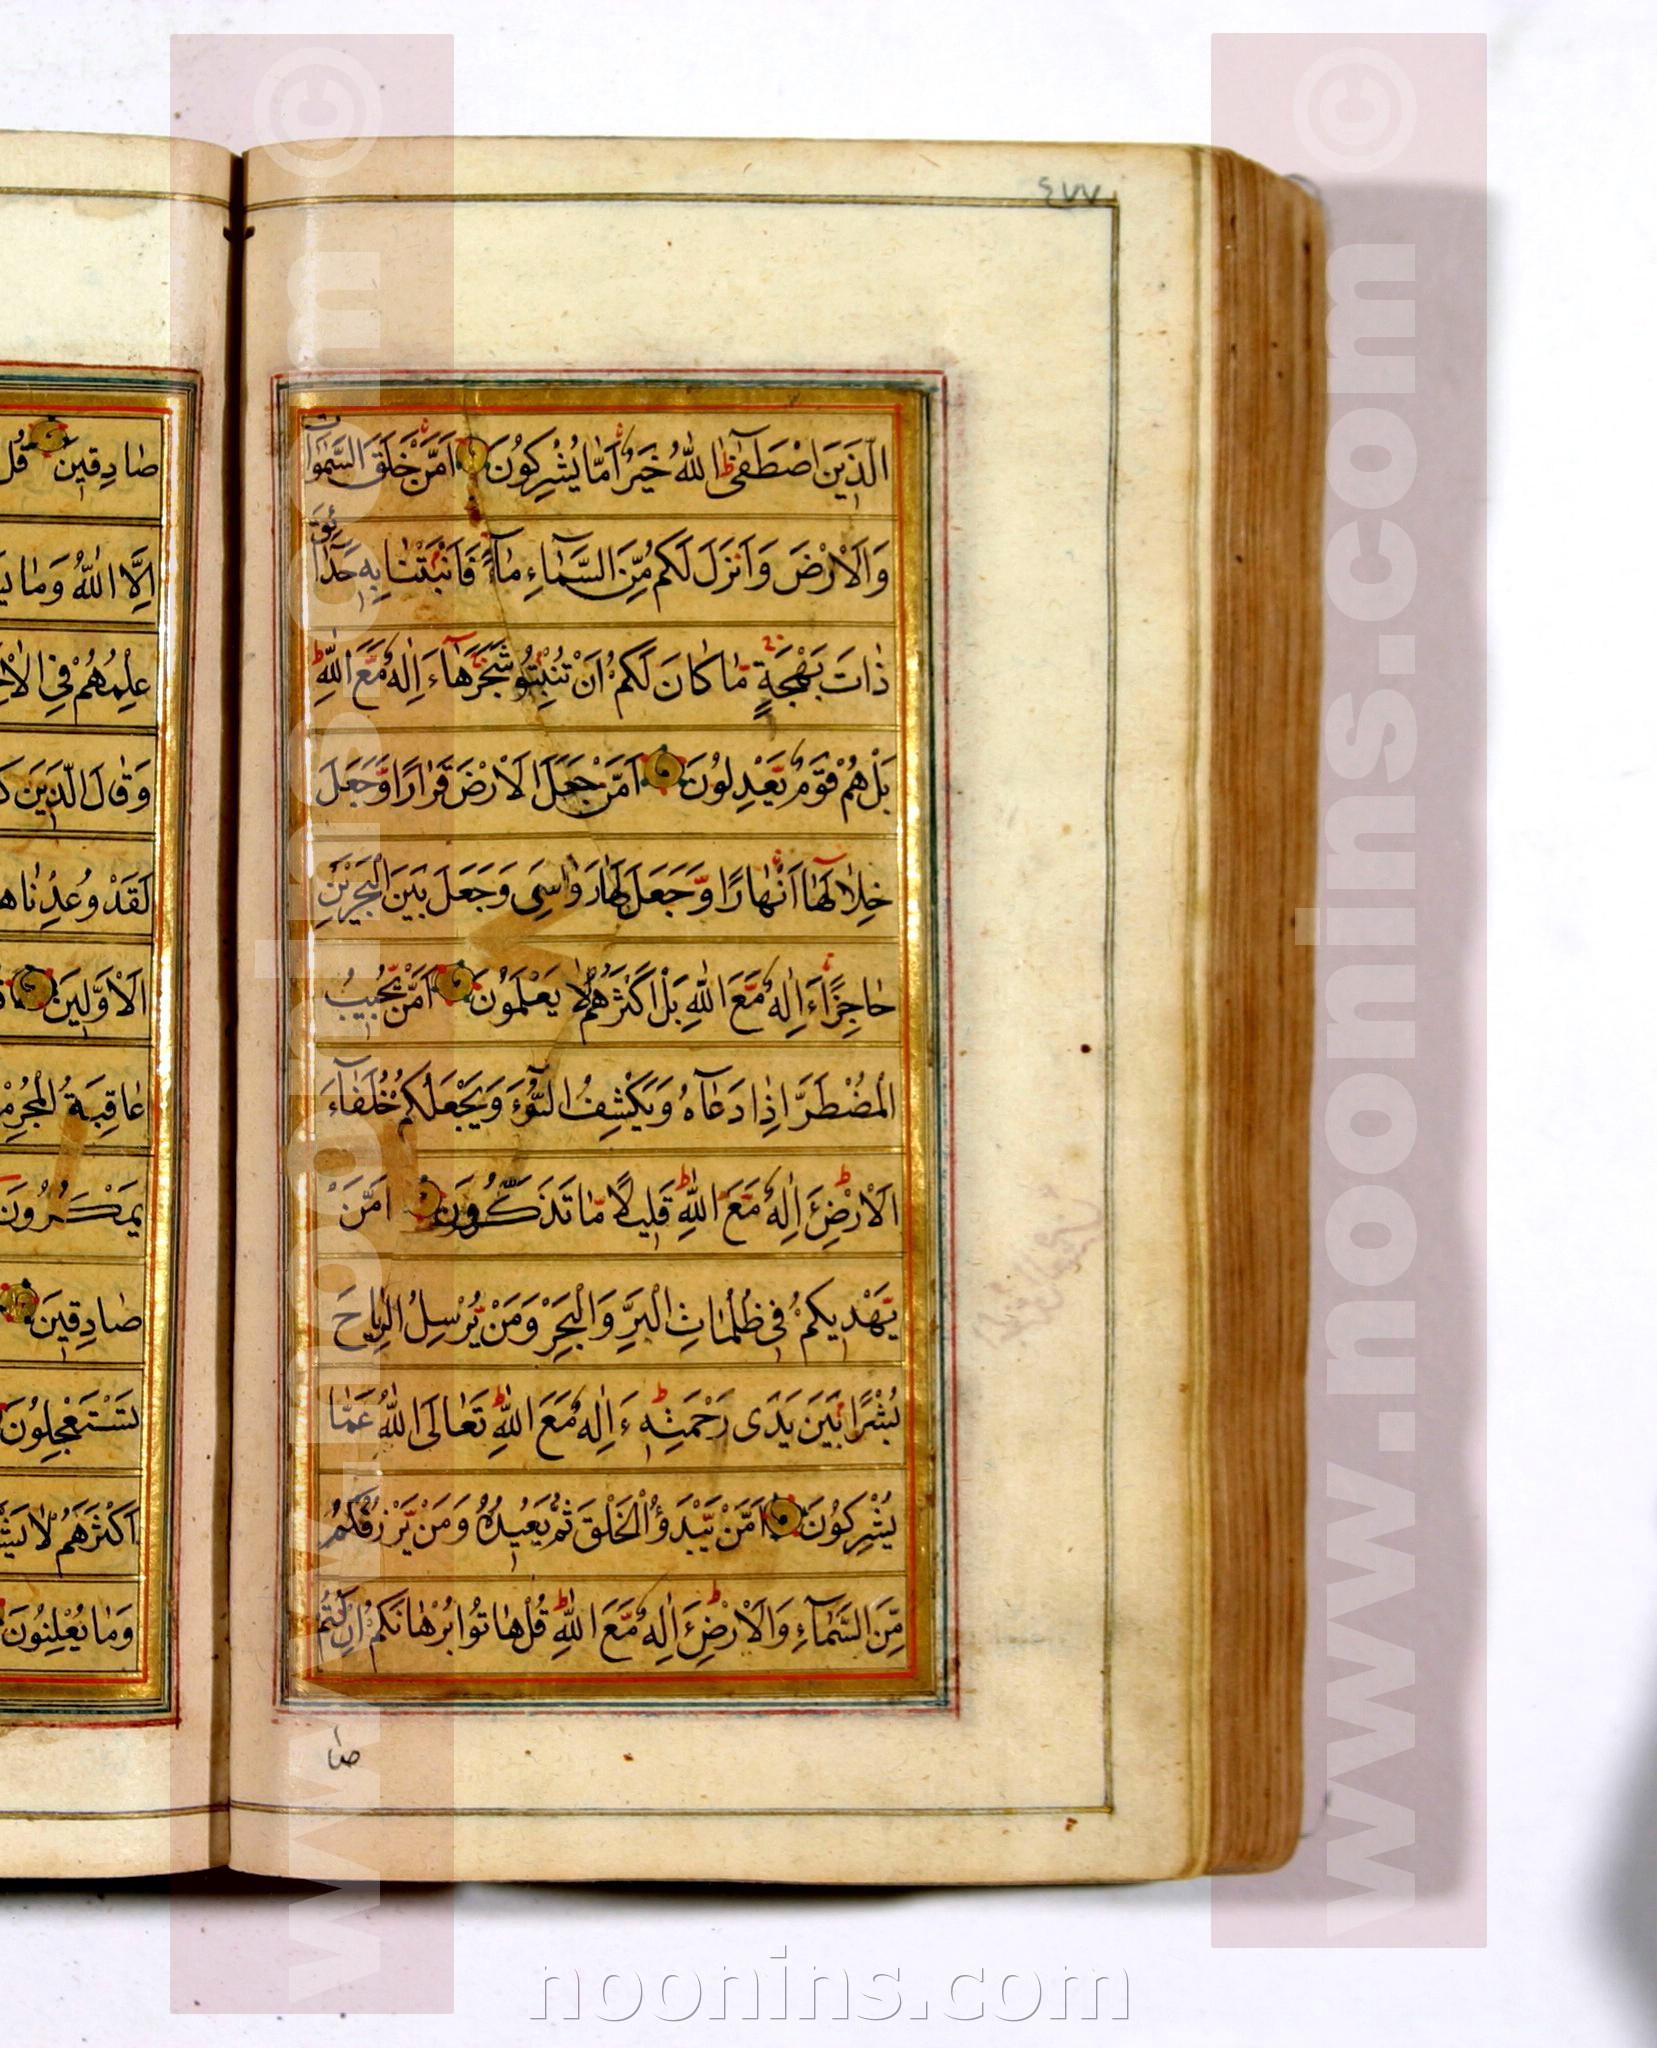 ٤٧٧
الَّذِينَ اصْطَفٰى اللّٰهُ خَيْرٌ اَمَّا يُشْرِكُونَ اَمَّنْ خَلَقَ السَّمٰوَاتِ
وَالْاَرْضَ وَاَنْزَلَ لَكُمْ مِنَ السَّمَآءِ مَآءً فَاَنْبَتْنَا بِهِ حَدَآئِقَ
ذَاتَ بَهْجَةٍ مَا كَانَ لَكُمْ اَنْ تُنْبِتُوا شَجَرَهَا ءَاِلٰهٌ مَعَ اللّٰهِ
بَلْ هُمْ قَوْمٌ يَعْدِلُونَ اَمَّنْ جَعَلَ الْاَرْضَ قَرَارًا وَجَعَلَ
خِلَالَهَآ اَنْهَارًا وَجَعَلَ لَهَا رَوَاسِىَ وَجَعَلَ بَيْنَ الْبَحْرَيْنِ
حَاجِزًا ءَاِلٰهٌ مَعَ اللّٰهِ بَلْ اَكْثَرُهُمْ لَا يَعْلَمُونَ اَمَّنْ يُجِيبُ
الْمُضْطَرَّ اِذَا دَعَاهُ وَيَكْشِفُ السُّوٓءَ وَيَجْعَلُكُمْ خُلَفَآءَ
الْاَرْضِ ءَاِلٰهٌ مَعَ اللّٰهِ قَلِيلًا مَا تَذَكَّرُونَ اَمَّنْ
يَهْدِيكُمْ فِى ظُلُمَاتِ الْبَرِّ وَالْبَحْرِ وَمَنْ يُرْسِلُ الرِّيَاحَ
بُشْرًا بَيْنَ يَدَىْ رَحْمَتِهِ ءَاِلٰهٌ مَعَ اللّٰهِ تَعَالَى اللّٰهُ عَمَّا
يُشْرِكُونَ اَمَّنْ يَبْدَؤُا الْخَلْقَ ثُمَّ يُعِيدُهُ وَمَنْ يَرْزُقُكُمْ
مِنَ السَّمَآءِ وَالْاَرْضِ ءَاِلٰهٌ مَعَ اللّٰهِ قُلْ هَاتُوا بُرْهَانَكُمْ اِنْ كُنْتُمْ
صا
صَادِقِينَ قُلْ
اِلَّا اللّٰهُ وَمَا
عِلْمُهُمْ فِى
وَقَالَ الَّذِينَ
لَقَدْ وُعِدْنَا
الْاَوَّلِينَ
عَاقِبَةُ الْمُجْرِ
يَمْكُرُونَ
صَادِقِينَ
تَسْتَعْجِلُونَ
اَكْثَرَهُمْ لَا
وَمَا يُعْلِنُونَ
www.noonins.com ©
www.noonins.com ©
noonins.com